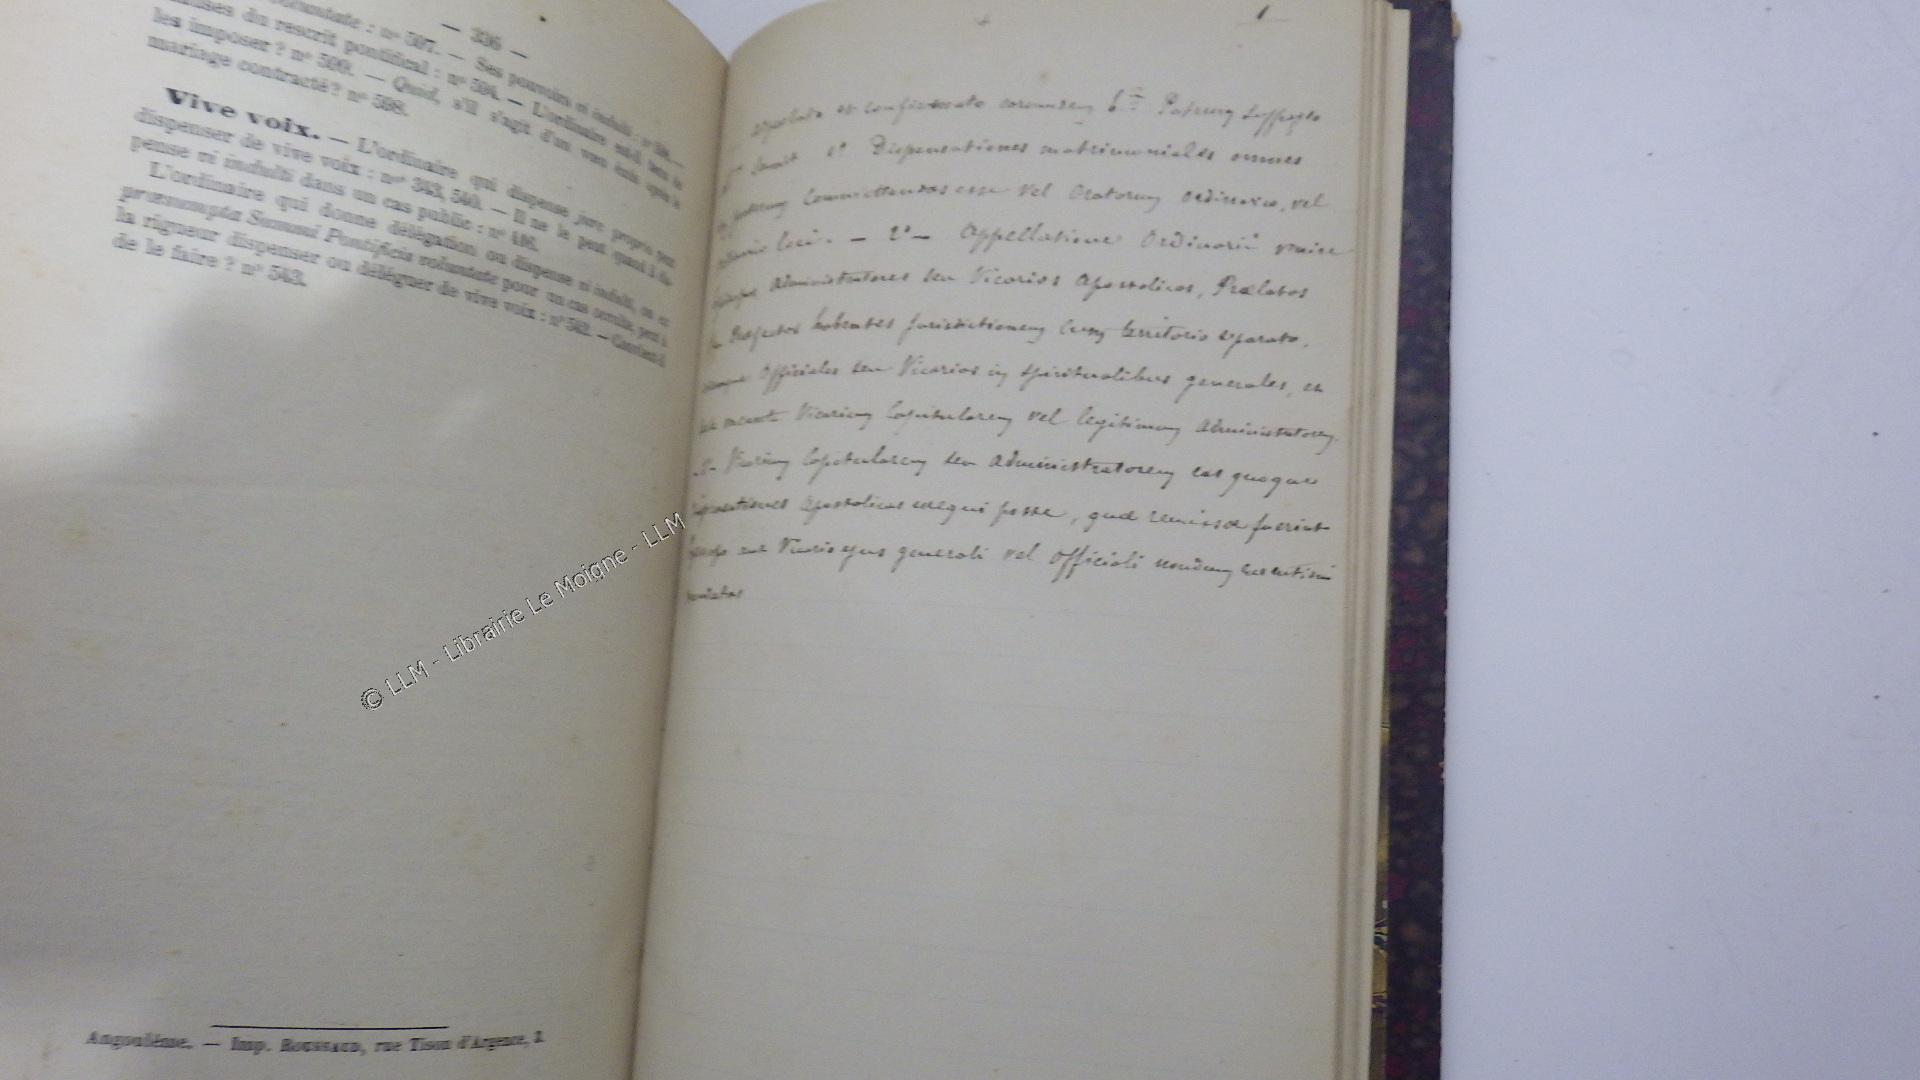 — 336 —
du rescrit pontifical : n° 594. — Ses pouvoirs vi indulti : n°
les imposer ? n° 599. — Quid, s'il s'agit d'un vœu émis après le
mariage contracté ? n° 598.
Vive voix. — L'ordinaire qui dispense jure proprio peut
dispenser de vive voix : n°s 343, 540. — Il ne le peut quand il dis-
pense vi indulti dans un cas public : n° 446.
L'ordinaire qui donne délégation ou dispense vi indulti, ou ex
præsumpta Summi Pontificis voluntate pour un cas occulte, peut à
la rigueur dispenser ou déléguer de vive voix : n° 542. — Convient-il
de le faire ? n° 543.
Angoulême. — Imp. ROUSSAUD, rue Tison d'Argence, 3.
1
et confirmato eorumdem Patrum suffragio
1° Dispensationes matrimoniales omnes
committendas esse vel Oratorum ordinario, vel
loci. — 2° — Appellatione Ordinarii venire
Administratores seu Vicarios Apostolicos, Prælatos
Præfectos habentes jurisdictionem cum territorio separato,
Officiales seu Vicarios in spiritualibus generales, et
vacante Vicarium Capitularem vel legitimum Administratorem.
3°- Vicarium Capitularem seu Administratorem eas quoque
Apostolicas exequi posse, quæ remissæ fuerint
aut Vicario ejus generali vel Officiali nondum executioni
© LLM - Librairie Le Moigne - LLM